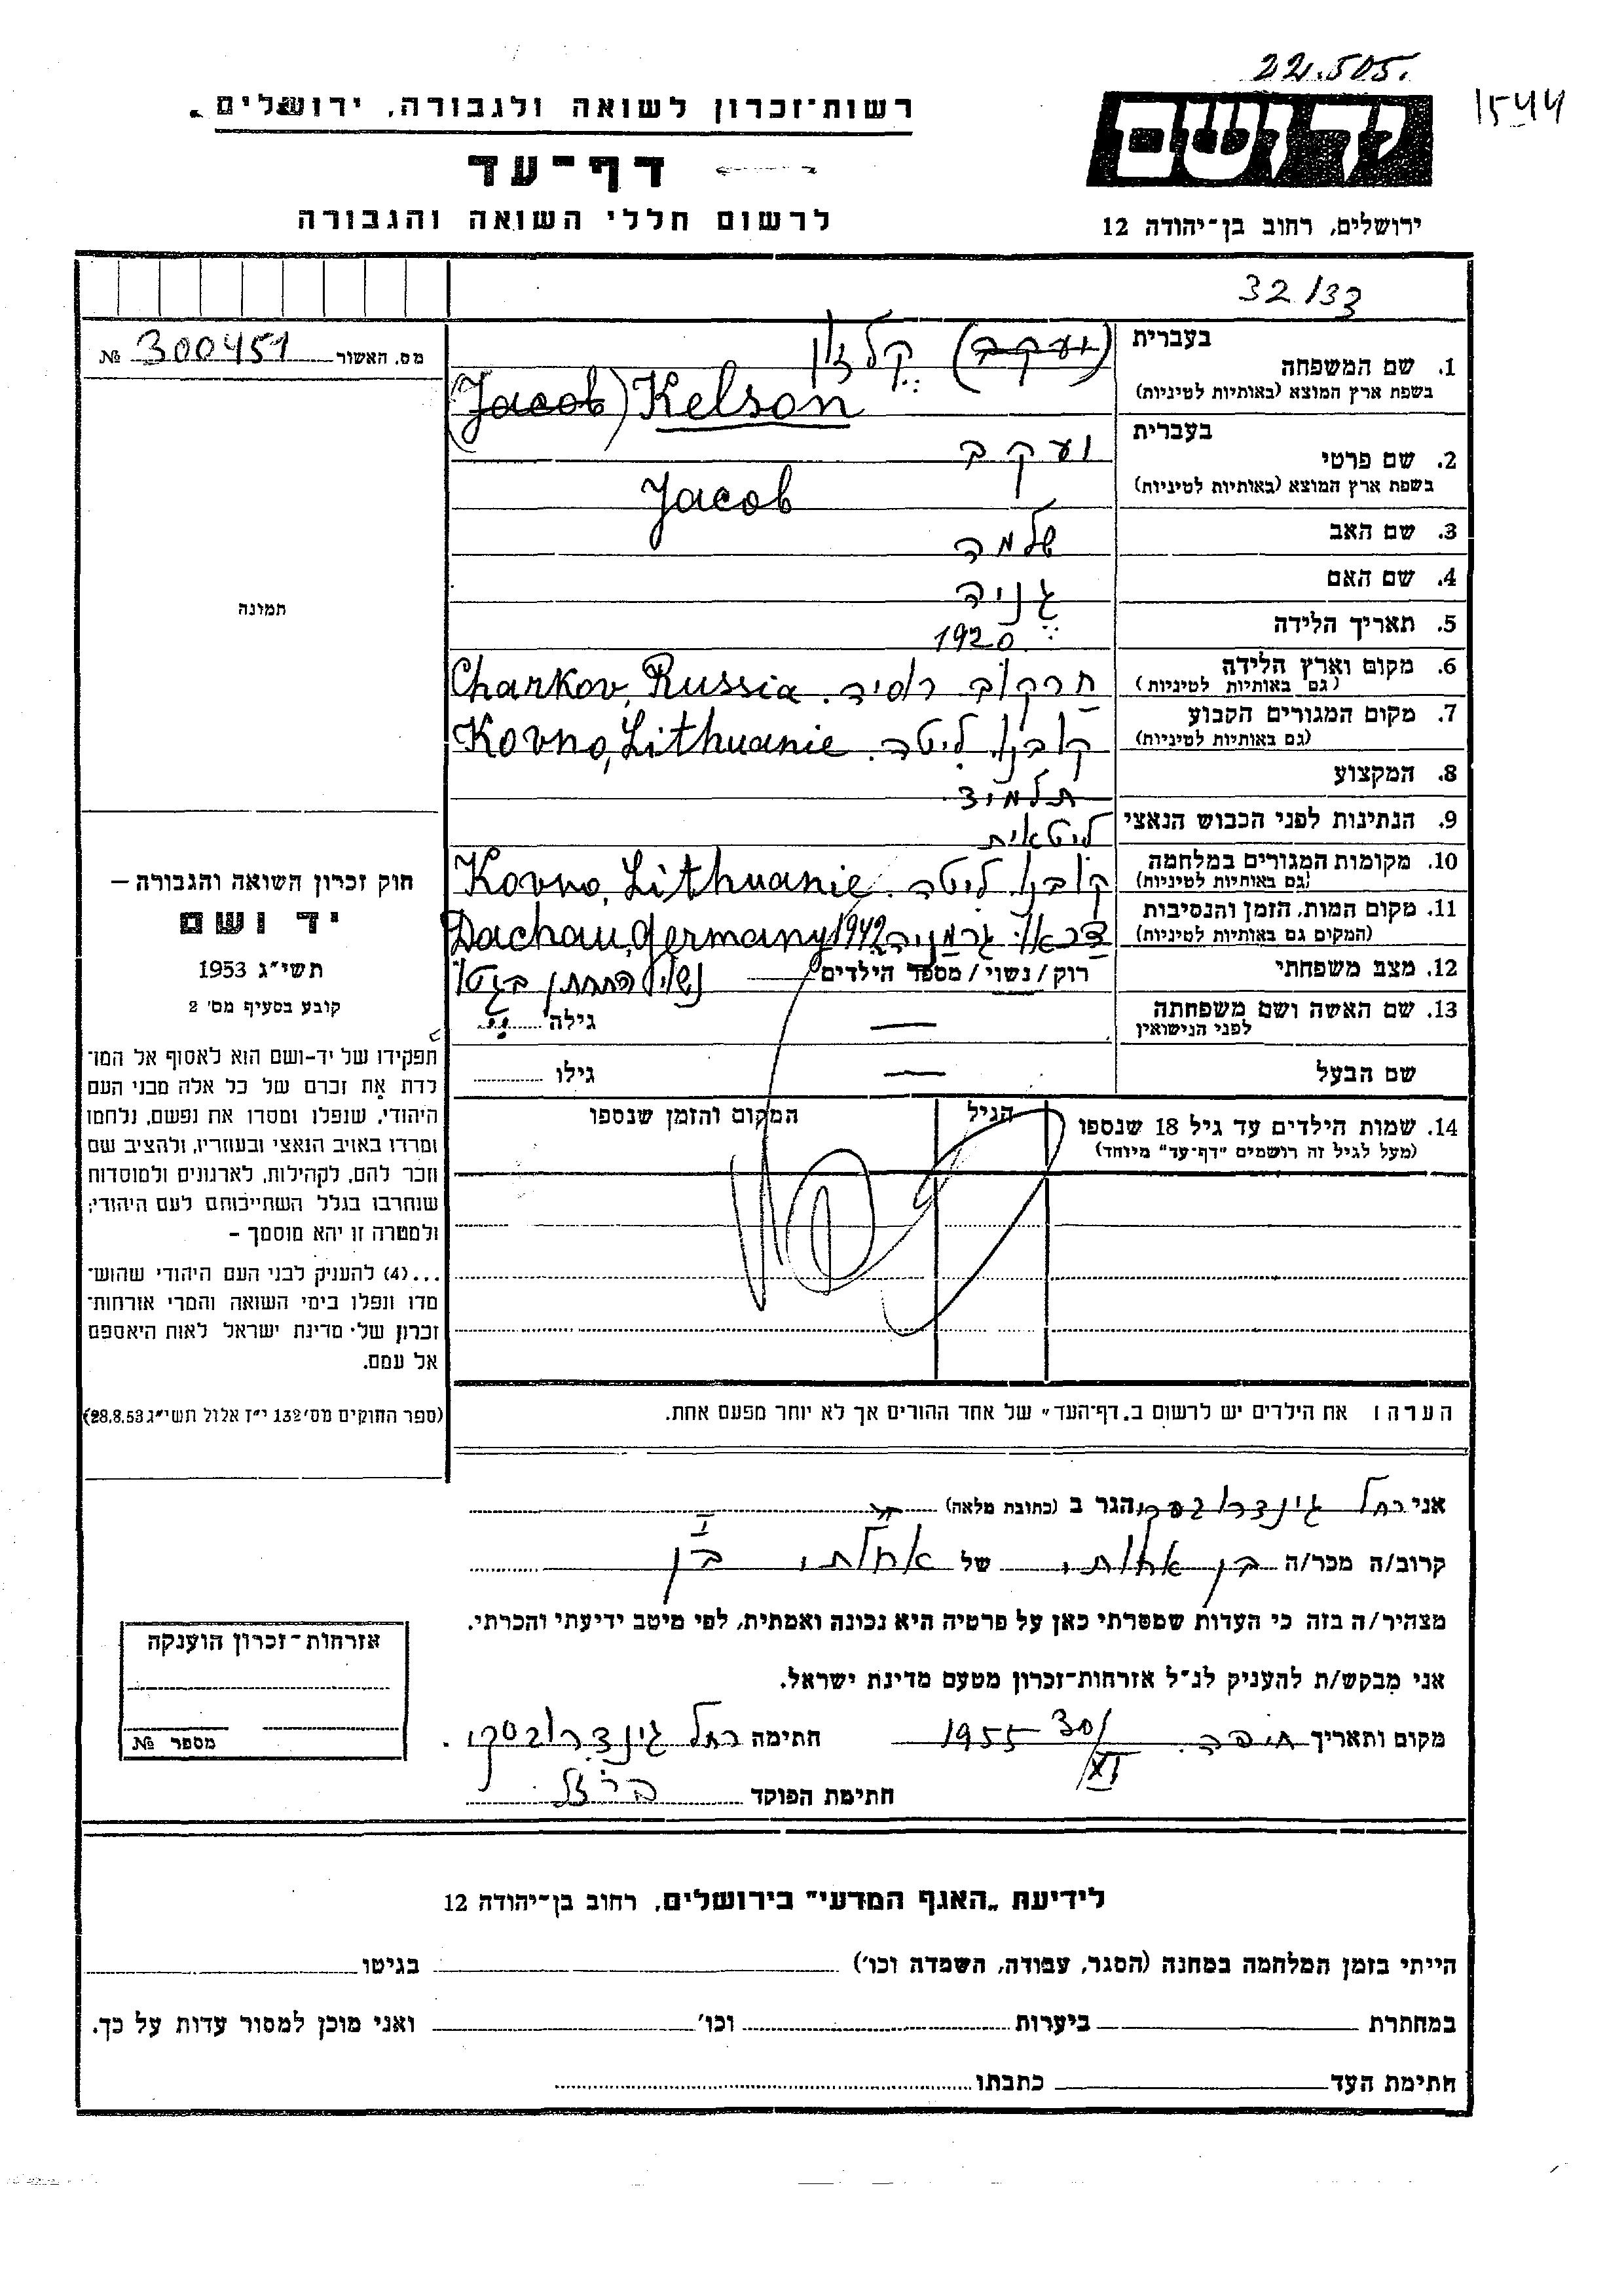 22.505.
1544
יד ושם
ירושלים, רחוב בן־יהודה 12
רשות־זכרון לשואה ולגבורה, ירושלים
דף־עד
לרשום חללי השואה והגבורה
32/33
מס. האשור 300451 №
תמונה
חוק זכרון השואה והגבורה –
יד ושם
תשי״ג 1953
קובע בסעיף מס׳ 2
תפקידו של יד-ושם הוא לאסוף אל המו־
לדת את זכרם של כל אלה מבני העם
היהודי, שנפלו ומסרו את נפשם, נלחמו
ומרדו באויב הנאצי ובעוזריו, ולהציב שם
וזכר להם, לקהילות, לארגונים ולמוסדות
שנחרבו בגלל השתייכותם לעם היהודי;
ולמטרה זו יהא מוסמך –
...(4) להעניק לבני העם היהודי שהוש־
מדו ונפלו בימי השואה והמרי אזרחות־
זכרון של מדינת ישראל לאות היאספם
אל עמם.
(ספר החוקים מס׳ 132 י״ז אלול תשי״ג 28.8.53)
1. שם המשפחה בעברית (יעקב) קלזון
בשפת ארץ המוצא (באותיות לטיניות) (Jacob) Kelson
2. שם פרטי בעברית יעקב
בשפת ארץ המוצא (באותיות לטיניות) Jacob
3. שם האב שלמה
4. שם האם גניה
5. תאריך הלידה 1920
6. מקום וארץ הלידה (גם באותיות לטיניות) חרקוב רוסיה. Charkov, Russia
7. מקום המגורים הקבוע (גם באותיות לטיניות) קובנו. ליטה. Kovno, Lithuanie
8. המקצוע תלמיד
9. הנתינות לפני הכבוש הנאצי ליטאית
10. מקומות המגורים במלחמה (גם באותיות לטיניות) קובנו. ליטה. Kovno, Lithuanie
11. מקום המות, הזמן והנסיבות (המקום גם באותיות לטיניות) דכאו. גרמניה 1942 Dachau, Germany
12. מצב משפחתי רוק / נשוי / מספר הילדים נשוי התחתן בגטו
13. שם האשה ושם משפחתה לפני הנישואין — גילה
שם הבעל — גילו
14. שמות הילדים עד גיל 18 שנספו הגיל המקום והזמן שנספו
(מעל לגיל זה רושמים "דף־עד" מיוחד)
הערה ! את הילדים יש לרשום ב„דף־העד" של אחד ההורים אך לא יותר מפעם אחת.
אני רחל גינדרובסקי הגר ב (כתובת מלאה)
קרוב/ה מכר/ה בן אחותי של אחותי בן
מצהיר/ה בזה כי העדות שמסרתי כאן על פרטיה היא נכונה ואמתית, לפי מיטב ידיעתי והכרתי.
אני מבקש/ת להעניק לנ״ל אזרחות־זכרון מטעם מדינת ישראל.
מקום ותאריך חיפה. 30/XI 1955 חתימה רחל גינדרובסקי.
חתימת הפוקד
אזרחות־זכרון הוענקה
מספר №
לידיעת „האגף המדעי" בירושלים, רחוב בן־יהודה 12
הייתי בזמן המלחמה במחנה (הסגר, עבודה, השמדה וכו׳) בגיטו
במחתרת ביערות וכו׳ ואני מוכן למסור עדות על כך.
חתימת העד כתבתו